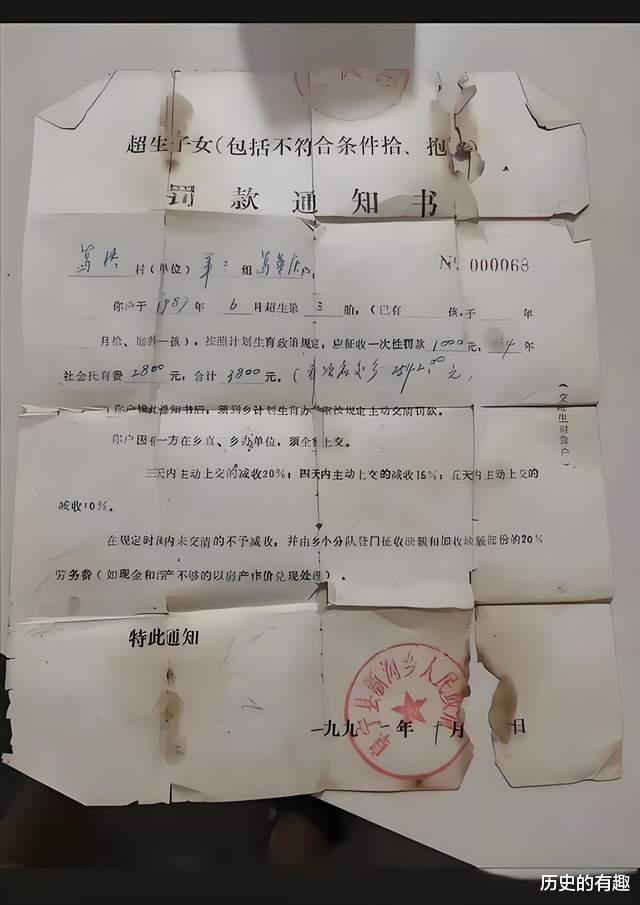 超生子女(包括不符合条件拾、抱
罚款通知书
村(单位) 组
№ 000068
你户于1987年6月超生第三胎,(已有 孩,于 年
月拾、抱养一孩),按照计划生育政策规定,应征收一次性罚款1000元, 年
社会抚育费2800元,合计3800元,( 2542.00元,
你户接此通知书后,须到乡计划生育办 按规定主动交清罚款。
你户因有一方在乡直、乡办单位,须全额上交。
三天内主动上交的减收20%;四天内主动上交的减收15%;五天内主动上交的
减收10%。
在规定时间内未交清的不予减收,并由乡小分队登门征收欠额和加收欠额部份的20%
劳务费(如现金和 产不够的以房产作价兑现处理)。
(交超生对象户)
特此通知
宁县新沟乡人民政府
一九九一年 月 日
历史的有趣